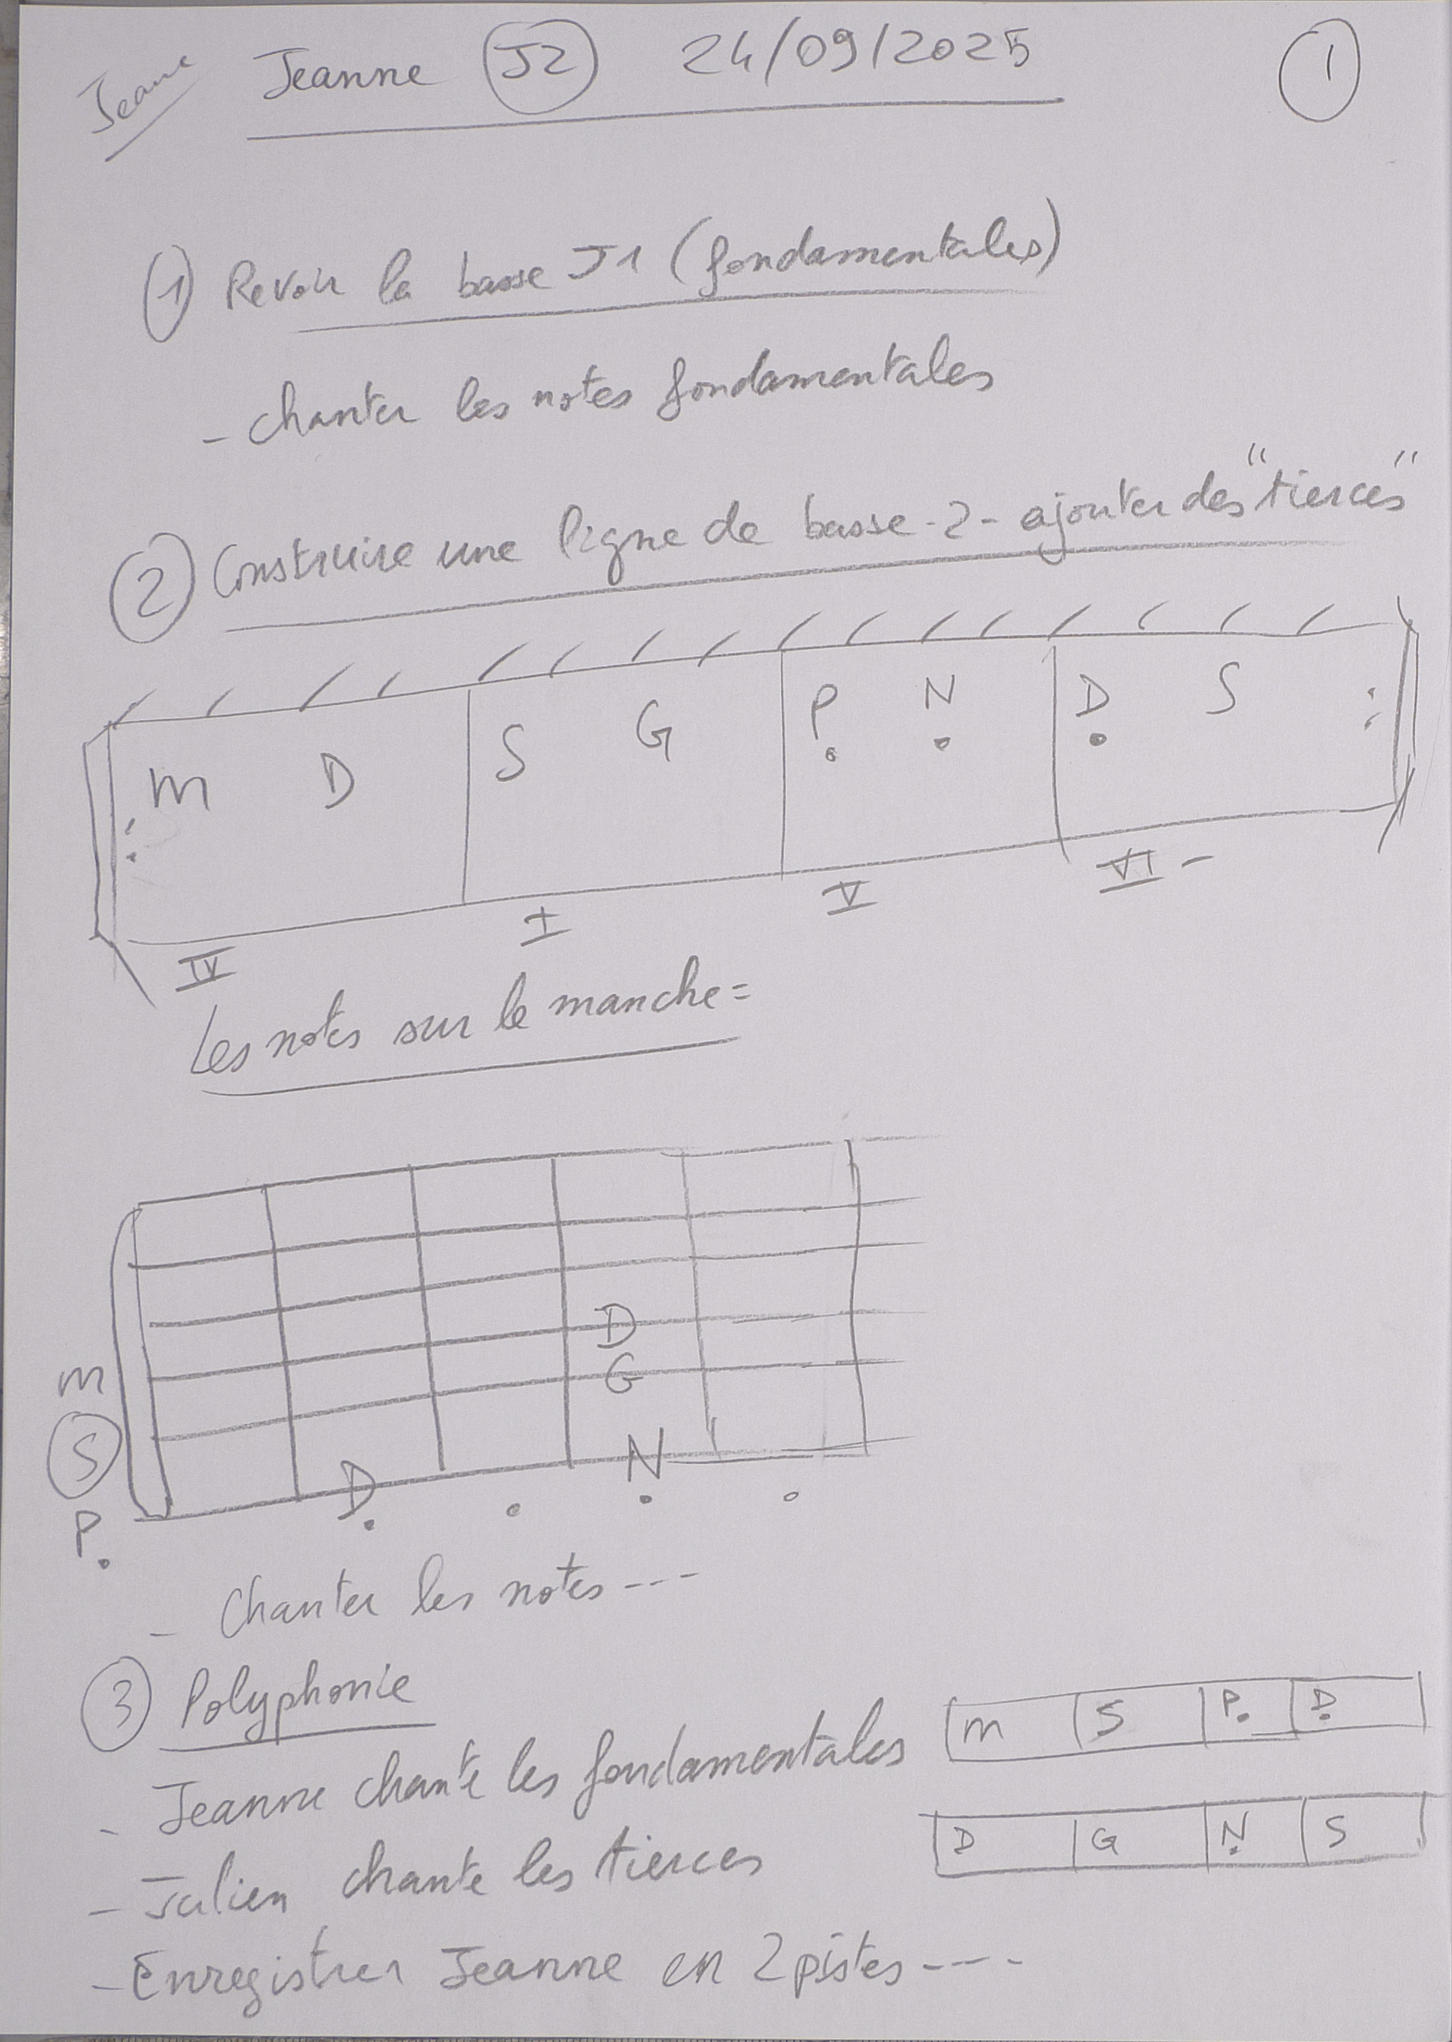 Jeanne Jeanne J2 24/09/2025 1
1 Revoir la basse J1 (fondamentales)
- chanter les notes fondamentales
2 Construire une ligne de basse -2- ajouter des "tierces"
m D S G P. N. D. S
IV I V VI -
Les notes sur le manche =
D
m G
S N.
P. D.
- Chanter les notes ---
3 Polyphonie
m S P. D.
- Jeanne chante les fondamentales
D G N. S
- Julien chante les tierces
- Enregistrer Jeanne en 2 pistes ----